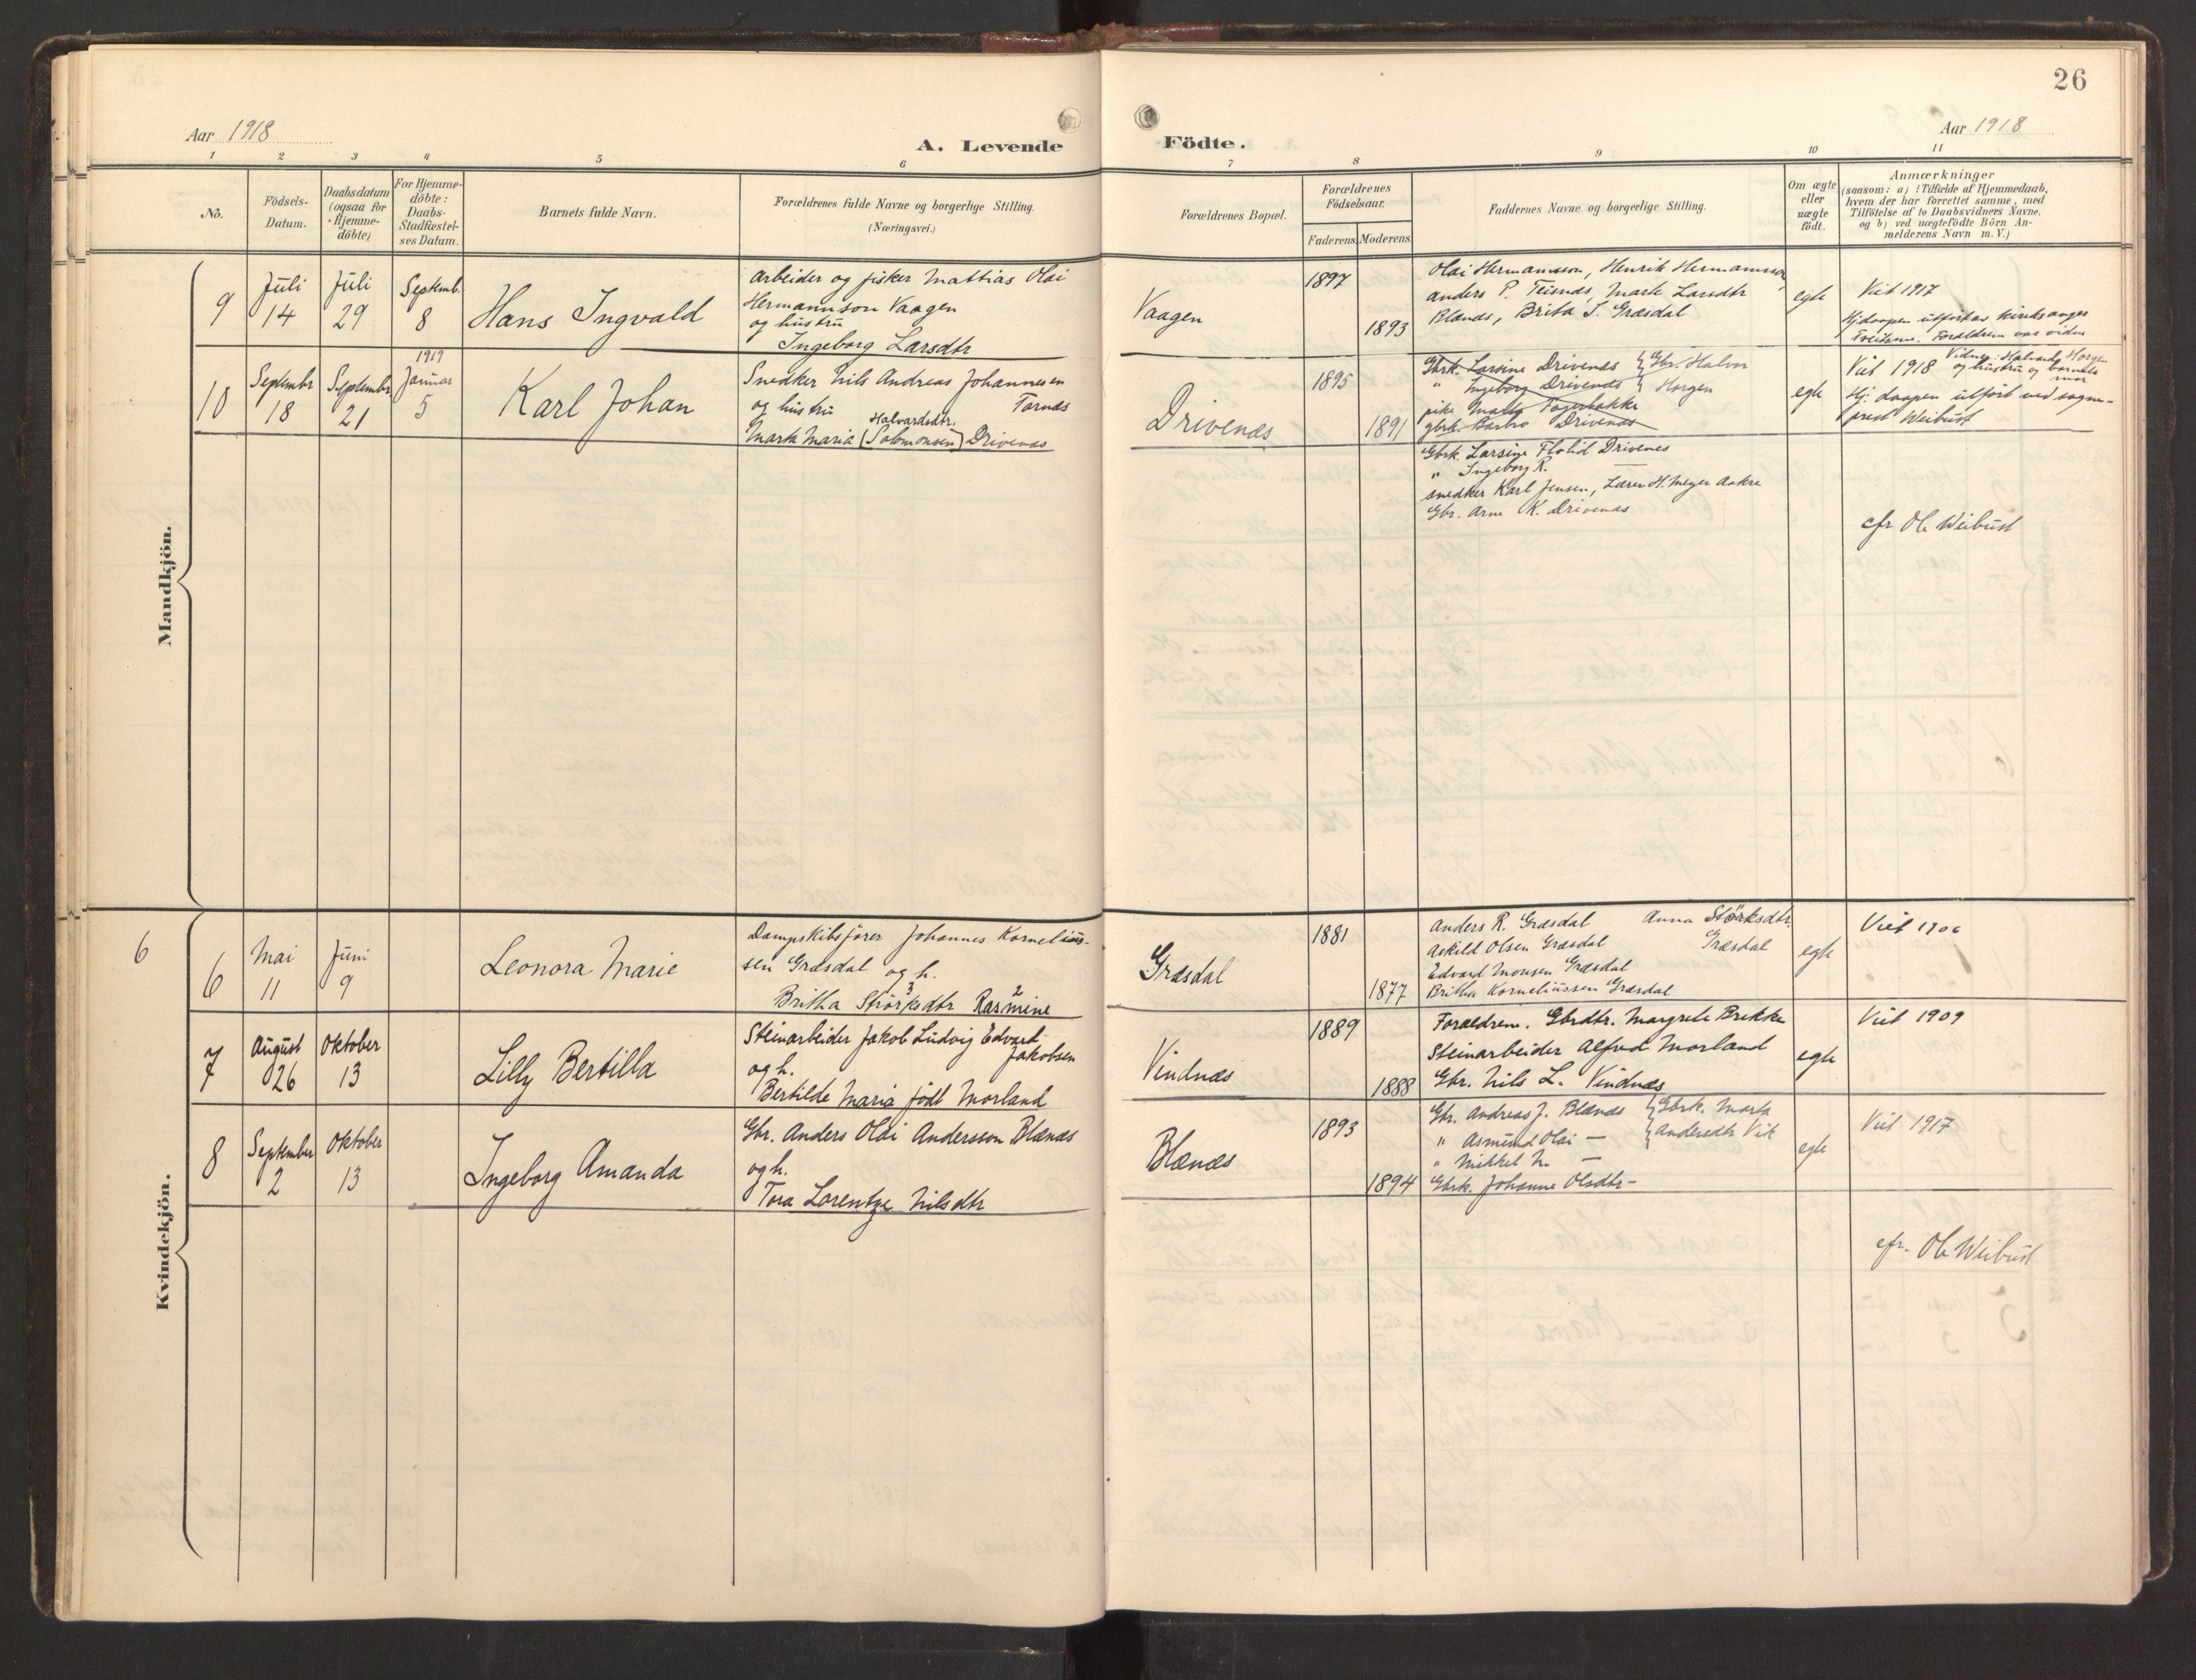 26
Aar 1918
A. Levende Födte.
Aar 1918
1 2 3 4 5 6 7 8 9 10 11
No.
Födsels-
Datum.
Daabsdatum
(ogsaa for
Hjemme-
döbte)
For Hjemme-
döbte:
Daabs-
Stadfæstel-
ses Datum.
Barnets fulde Navn.
Forældrenes fulde Navne og borgerlige Stilling.
(Næringsvei.)
Forældrenes Bopæl.
Forældrenes
Födselsaar.
Faderens. Moderens.
Faddernes Navne og borgerlige Stilling.
Om ægte
eller
uægte
födt.
Anmærkninger
(saasom: a) i Tilfælde af Hjemmedaab,
hvem der har forrettet samme, med
Tilföielse af to Daabsvidners Navne,
og b) ved uægtefödte Börn An-
melderens Navn m. V.)
Mandkjön.
9
Juli
14
Juli
29
Septemb.
8
Hans Ingvald
Arbeider og fisker Mattias Olai
Hermannson Vaagen
og hustru
Ingeborg Larsdtr
Vaagen
1897
1893
Olai Hermannson, Henrik Hermannson,
Anders P. Teisnes, Marte Larsdtr
Blænæs, Brita S. Græsdal
egte
Viet 1917
Hjdaapen utfört av kirkesanger
Foreldrene var vidner
10
Septembr
18
Septembr
21
1919
Januar
5
Karl Johan
Snedker Nils Andreas Johannesen
og hustru Tornæs
Halvardsdtr.
Marte Maria (Salomonsen) Drivenæs
Drivenæs
1895
1891
Gbrk. Larsine Drivenæs } Gbr. Halvor
" Ingeborg Drivenæs } Horgen
pike Marta Fagerbakke
gbrk. Barbro Drivenæs
Gbrk. Larsine Flolid Drivenes
" Ingeborg R. —
snedker Karl Jensen, Lærer H. Meyer Aakre
Gbr. Arne K. Drivenæs
egte
Viet 1918
Vidner: Halvard Horgen
og hustru og barnets
mor
Hj. daapen utfört ved sogne-
prest Weibust
cfr Ol. Weibust
Kvindekjön.
6
6
Mai
11
Juni
9
Leonora Marie
Dampskibsförer Johannes Kornelius-
sen Græsdal og h.
3 2
Britha Störksdtr Rasmine
Græsdal
1881
1877
Anders R. Græsdal Anna Störksdtr.
Askild Olsen Græsdal Græsdal
Edvard Monsen Græsdal
Britha Korneliussen Græsdal
egte
Viet 1906
7
August
26
Oktober
13
Lilly Bertilla
Steinarbeider Jakob Ludvig Edvard
Jakobsen
og h.
Bertilde Maria födt Morland
Vindnæs
1889
1888
Forældrene. Gbrdtr. Margrete Brekke
Steinarbeider Alfred Morland
Gbr. Nils L. Vindnæs
egte
Viet 1909
8
September
2
Oktober
13
Ingeborg Amanda
Gbr. Anders Olai Andersson Blænæs
og h.
Tora Lorentze Nilsdtr
Blænæs
1893
1894
Gbr. Andreas J. Blænæs } Gbrk. Marta
" Asmund Olai — } Andersdtr Vik
" Mikkel N. —
Gbrk. Johanne Olsdtr —
egte
Viet 1917
cfr. Ol. Weibust